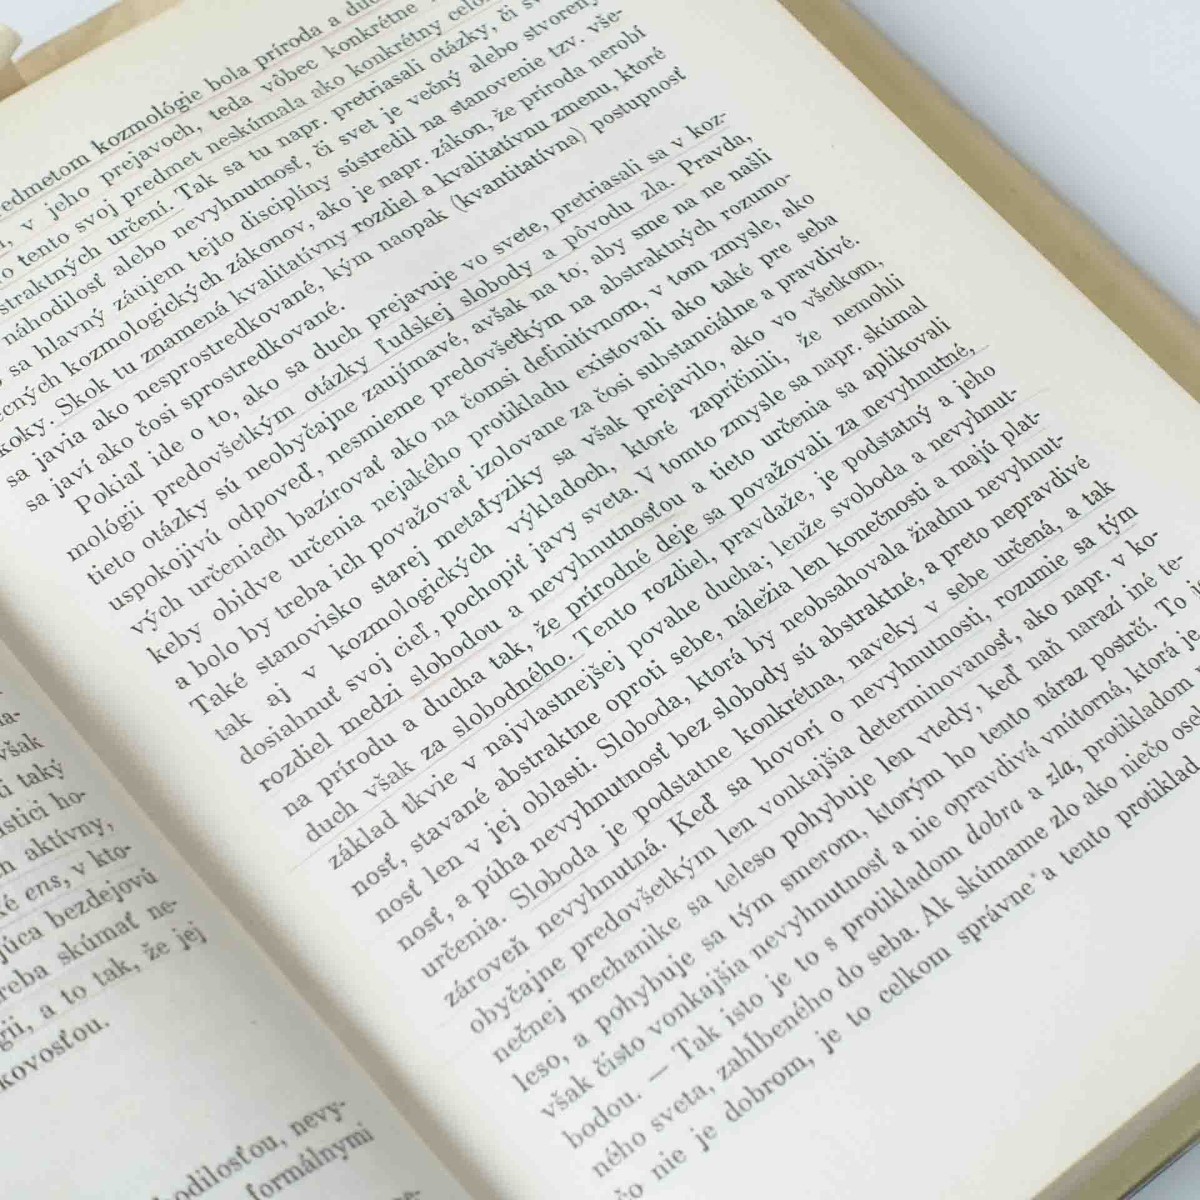 však
i taký
astici ho-
h aktívny,
ké ens, v kto-
júca bezdejovú
treba skúmať ne-
gii, a to tak, že jej
kovosťou.
odilosťou, nevy-
formálnymi
edmetom kozmológie bola príroda a
v jeho prejavoch, teda vôbec konkrétne
o tento svoj predmet neskúmala ako konkrétny
straktných určení. Tak sa tu napr. pretriasali otázky, či
náhodilosť alebo nevyhnutnosť, či svet je večný alebo stvorený
sa hlavný záujem tejto disciplíny sústredil na stanovenie tzv. vše-
ecných kozmologických zákonov, ako je napr. zákon, že príroda nerobí
koky. Skok tu znamená kvalitatívny rozdiel a kvalitatívnu zmenu, ktoré
sa javia ako nesprostredkované, kým naopak (kvantitatívna) postupnosť
sa javí ako čosi sprostredkované.
Pokiaľ ide o to, ako sa duch prejavuje vo svete, pretriasali sa v koz-
mológii predovšetkým otázky ľudskej slobody a pôvodu zla. Pravda,
tieto otázky sú neobyčajne zaujímavé, avšak na to, aby sme na ne našli
uspokojivú odpoveď, nesmieme predovšetkým na abstraktných rozumo-
vých určeniach bazírovať ako na čomsi definitívnom, v tom zmysle, ako
keby obidve určenia nejakého protikladu existovali ako také pre seba
a bolo by treba ich považovať izolovane za čosi substanciálne a pravdivé.
Také stanovisko starej metafyziky sa však prejavilo, ako vo všetkom,
tak aj v kozmologických výkladoch, ktoré zapríčinili, že nemohli
dosiahnuť svoj cieľ, pochopiť javy sveta. V tomto zmysle sa napr. skúmal
rozdiel medzi slobodou a nevyhnutnosťou a tieto určenia sa aplikovali
na prírodu a ducha tak, že prírodné deje sa považovali za nevyhnutné,
duch však za slobodného. Tento rozdiel, pravdaže, je podstatný a jeho
základ tkvie v najvlastnejšej povahe ducha; lenže svoboda a nevyhnut-
nosť, stavané abstraktne oproti sebe, náležia len konečnosti a majú plat-
nosť len v jej oblasti. Sloboda, ktorá by neobsahovala žiadnu nevyhnut-
nosť, a púha nevyhnutnosť bez slobody sú abstraktné, a preto nepravdivé
určenia. Sloboda je podstatne konkrétna, naveky v sebe určená, a tak
zároveň nevyhnutná. Keď sa hovorí o nevyhnutnosti, rozumie sa tým
obyčajne predovšetkým len vonkajšia determinovanosť, ako napr. v ko-
nečnej mechanike sa teleso pohybuje len vtedy, keď naň narazí iné te-
leso, a pohybuje sa tým smerom, ktorým ho tento náraz postrčí. To je
však čisto vonkajšia nevyhnutnosť a nie opravdivá vnútorná, ktorá je
bodou. — Tak isto je to s protikladom dobra a zla, protikladom
ného sveta, zahĺbeného do seba. Ak skúmame zlo ako niečo
čo nie je dobrom, je to celkom správne a tento protiklad